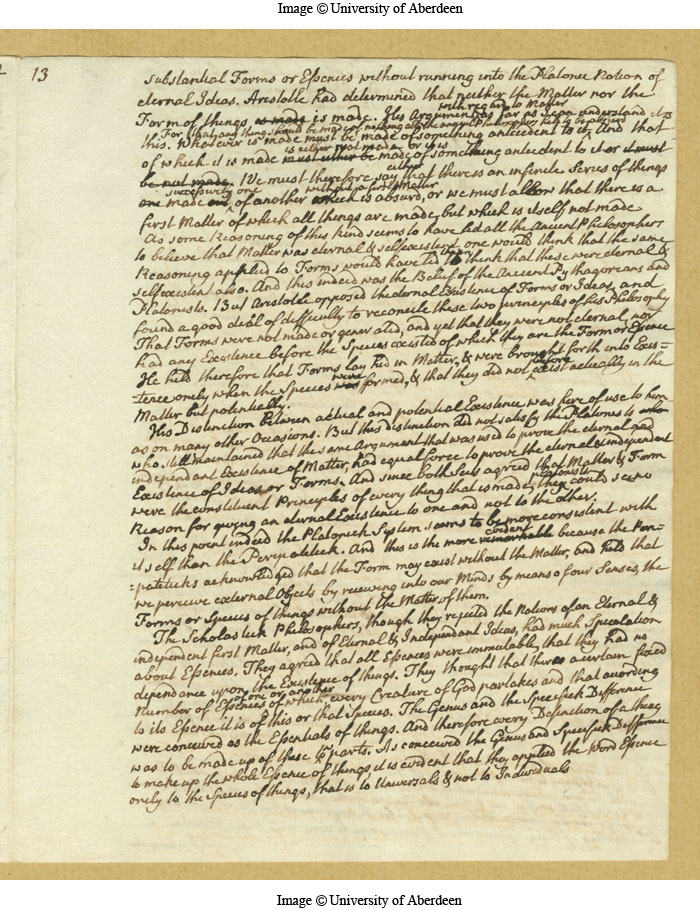 Image © University of Aberdeen
13
substantial Forms or Essences without running into the Platonic Notion of
eternal Ideas. Aristotle had determined that neither the Matter nor the
Form of things is made is made. His Argument with regard to Matter as far as I can understand it is
this. For that any thing should be made of nothing all the ancient Philosophers held to be absurd
Whatever is made must be made of something antecedent to it, And that
of which it is made is either not made or it is must either be made of something antecedent to it or it must
be not made. We must therefore either say that there is an infinite Series of things
successively one made out of another without a first Matter which is absurd, or we must allow that there is a
first Matter of which all things are made, but which is itself not made
As some Reasoning of this kind seems to have led all the Ancient Philosophers
to believe that Matter was eternal & selfexistent one would think that the same
Reasoning applied to Forms would have led them to think that these were eternal &
selfexistent also. And this indeed was the Belief of the Ancient Pythagoreans and
Platonists. But Aristotle opposed the eternal Existence of Forms or Ideas, and
found a good deal of difficulty to reconcile these two principles of his Philosophy
That Forms were not made or generated, and yet that they were not eternal, nor
had any Existence before the Species existed of which they are the Form or Essence
He held therefore that Forms lay hid in Matter, & were brought forth into Exis=
=tence onely when the Species were formed, & that they did not before exist actually in the
Matter but potentially.
This Distinction between actual and potential Existence was here of use to him
as on many other Occasions. But this distinction did not satisfy the Platonists who
who still maintained that the same Argument that was used to prove the eternal and
independent Existence of Matter, had equal force to prove the eternal & independent
Existence of Ideas or Forms. And since both Sects agreed that Matter & Form
were the constituent Principles of every thing that is made, the Platonists could see no
Reason for giving an eternal Existence to one and not to the other.
In this point indeed the Platonick System seems to be more consistent with
it self than the Peripatetick. And this is the more evident remarkable because the Peri=
=pateticks acknowledged that the Form may exist without the Matter, and held that
we perceive external Objects by receiving into our Minds by means of our Senses, the
Forms or Species of things without the Matter of them.
The Scholastick Philosophers, though they rejected the Notions of an Eternal &
independent first Matter, and of Eternal & Independent Ideas, had much Speculation
about Essences. They agreed that all Essences were immutable, that they had no
dependance upon the Existence of things. They thought that there is a certain fixed
Number of Essences of one or another of which every Creature of God partakes and that according
to its Essence it is of this or that Species. The Genus and the Specifick Difference
were conceived as the Essentials of things. And therefore every Definition of a thing
was to be made up of these two parts. As conceived the Genus and Specifick Difference
to make up the whole Essence of things it is evident that they applied the Word Essence
onely to the Species of things, that is to Universals & not to Individuals
Image © University of Aberdeen